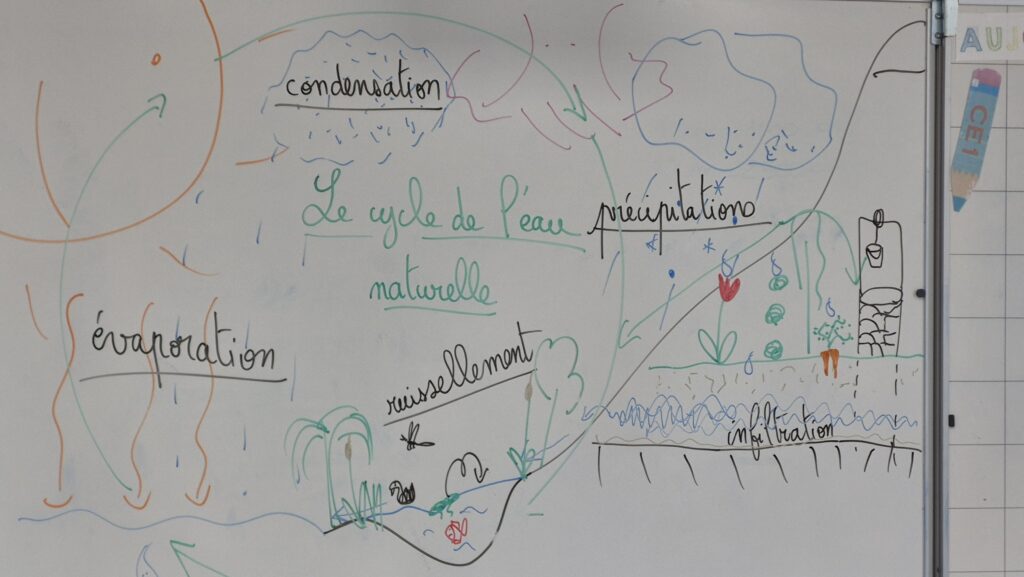 condensation
Le cycle de l'eau
naturelle
précipitations
évaporation
ruissellement
infiltration
AUJ
CE1